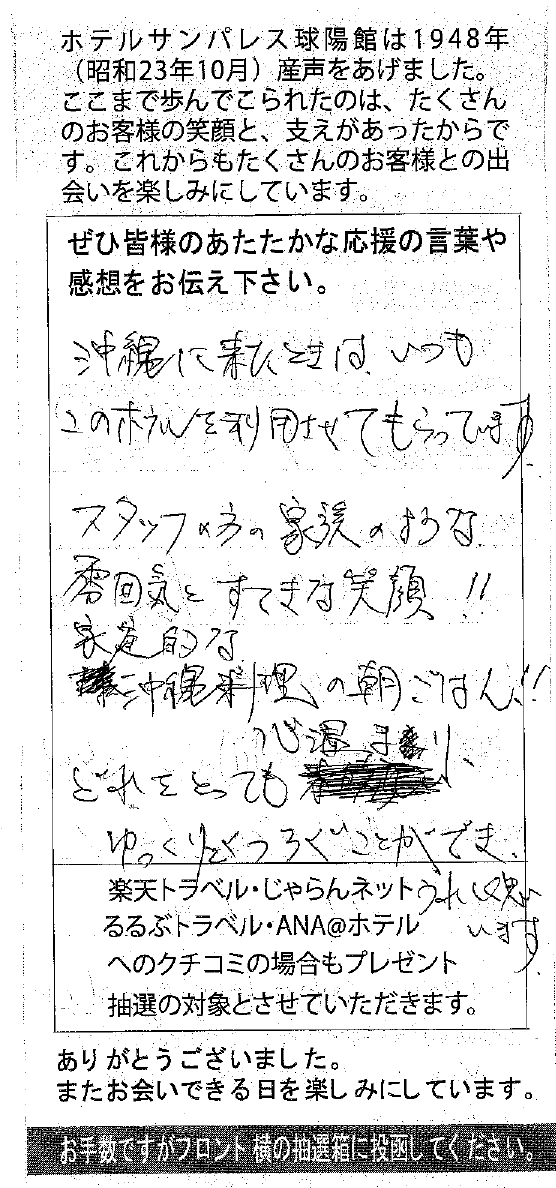 ホテルサンパレス球陽館は1948年
（昭和23年10月）産声をあげました。
ここまで歩んでこられたのは、たくさん
のお客様の笑顔と、支えがあったからで
す。これからもたくさんのお客様との出
会いを楽しみにしています。
ぜひ皆様のあたたかな応援の言葉や
感想をお伝え下さい。
沖縄に来たときは、いつも
このホテルを利用させてもらっています。
スタッフの方の家族のような
雰回気とすてきな笑顔!!
家庭的な
沖縄料理、の朝ごはん!!
心温まり、
どれをとっても
ゆっくりとくつろぐことができ、
うれしく思い
います。
楽天トラベル・じゃらんネット
るるぶトラベル・ANA@ホテル
へのクチコミの場合もプレゼント
抽選の対象とさせていただきます。
ありがとうございました。
またお会いできる日を楽しみにしています。
お手数ですがフロント横の抽選箱に投函してください。